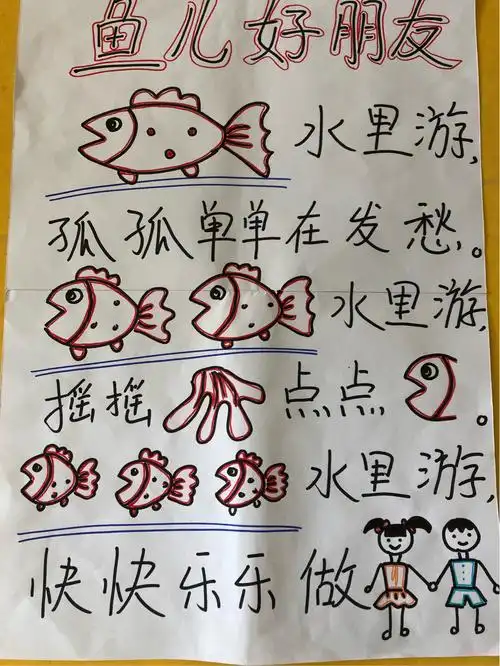 鱼儿好朋友
水里游,
孤孤单单在发愁。
水里游,
摇摇点点。
水里游,
快快乐乐做